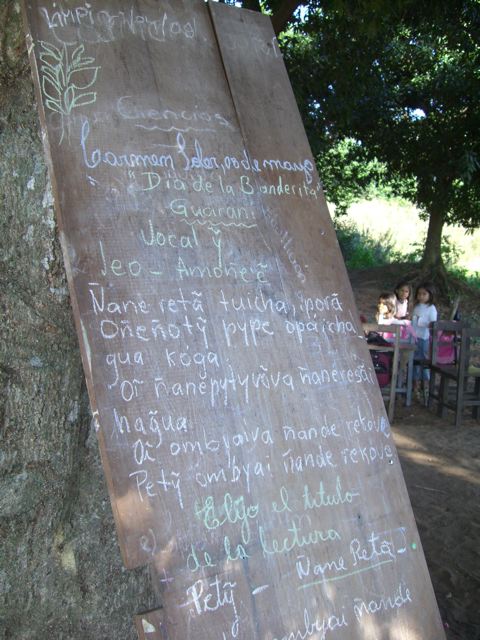 Ciencias
Carmen Peber, 20 de mayo
"Día de la Banderita"
Guaraní
Vocal ỹ
leo - Amoñe'ẽ
Ñane retã tuicha, iporã
Oñeñotỹ pype opáicha
gua koga.
Oĩ ñanepytyvõva ñaneresã
hag̃ua
Oĩ ombyaiva ñande rekove
Petỹ ombyai ñande rekove
Elijo el título
de la lectura
Petỹ - Ñane Retã
ombyai ñande